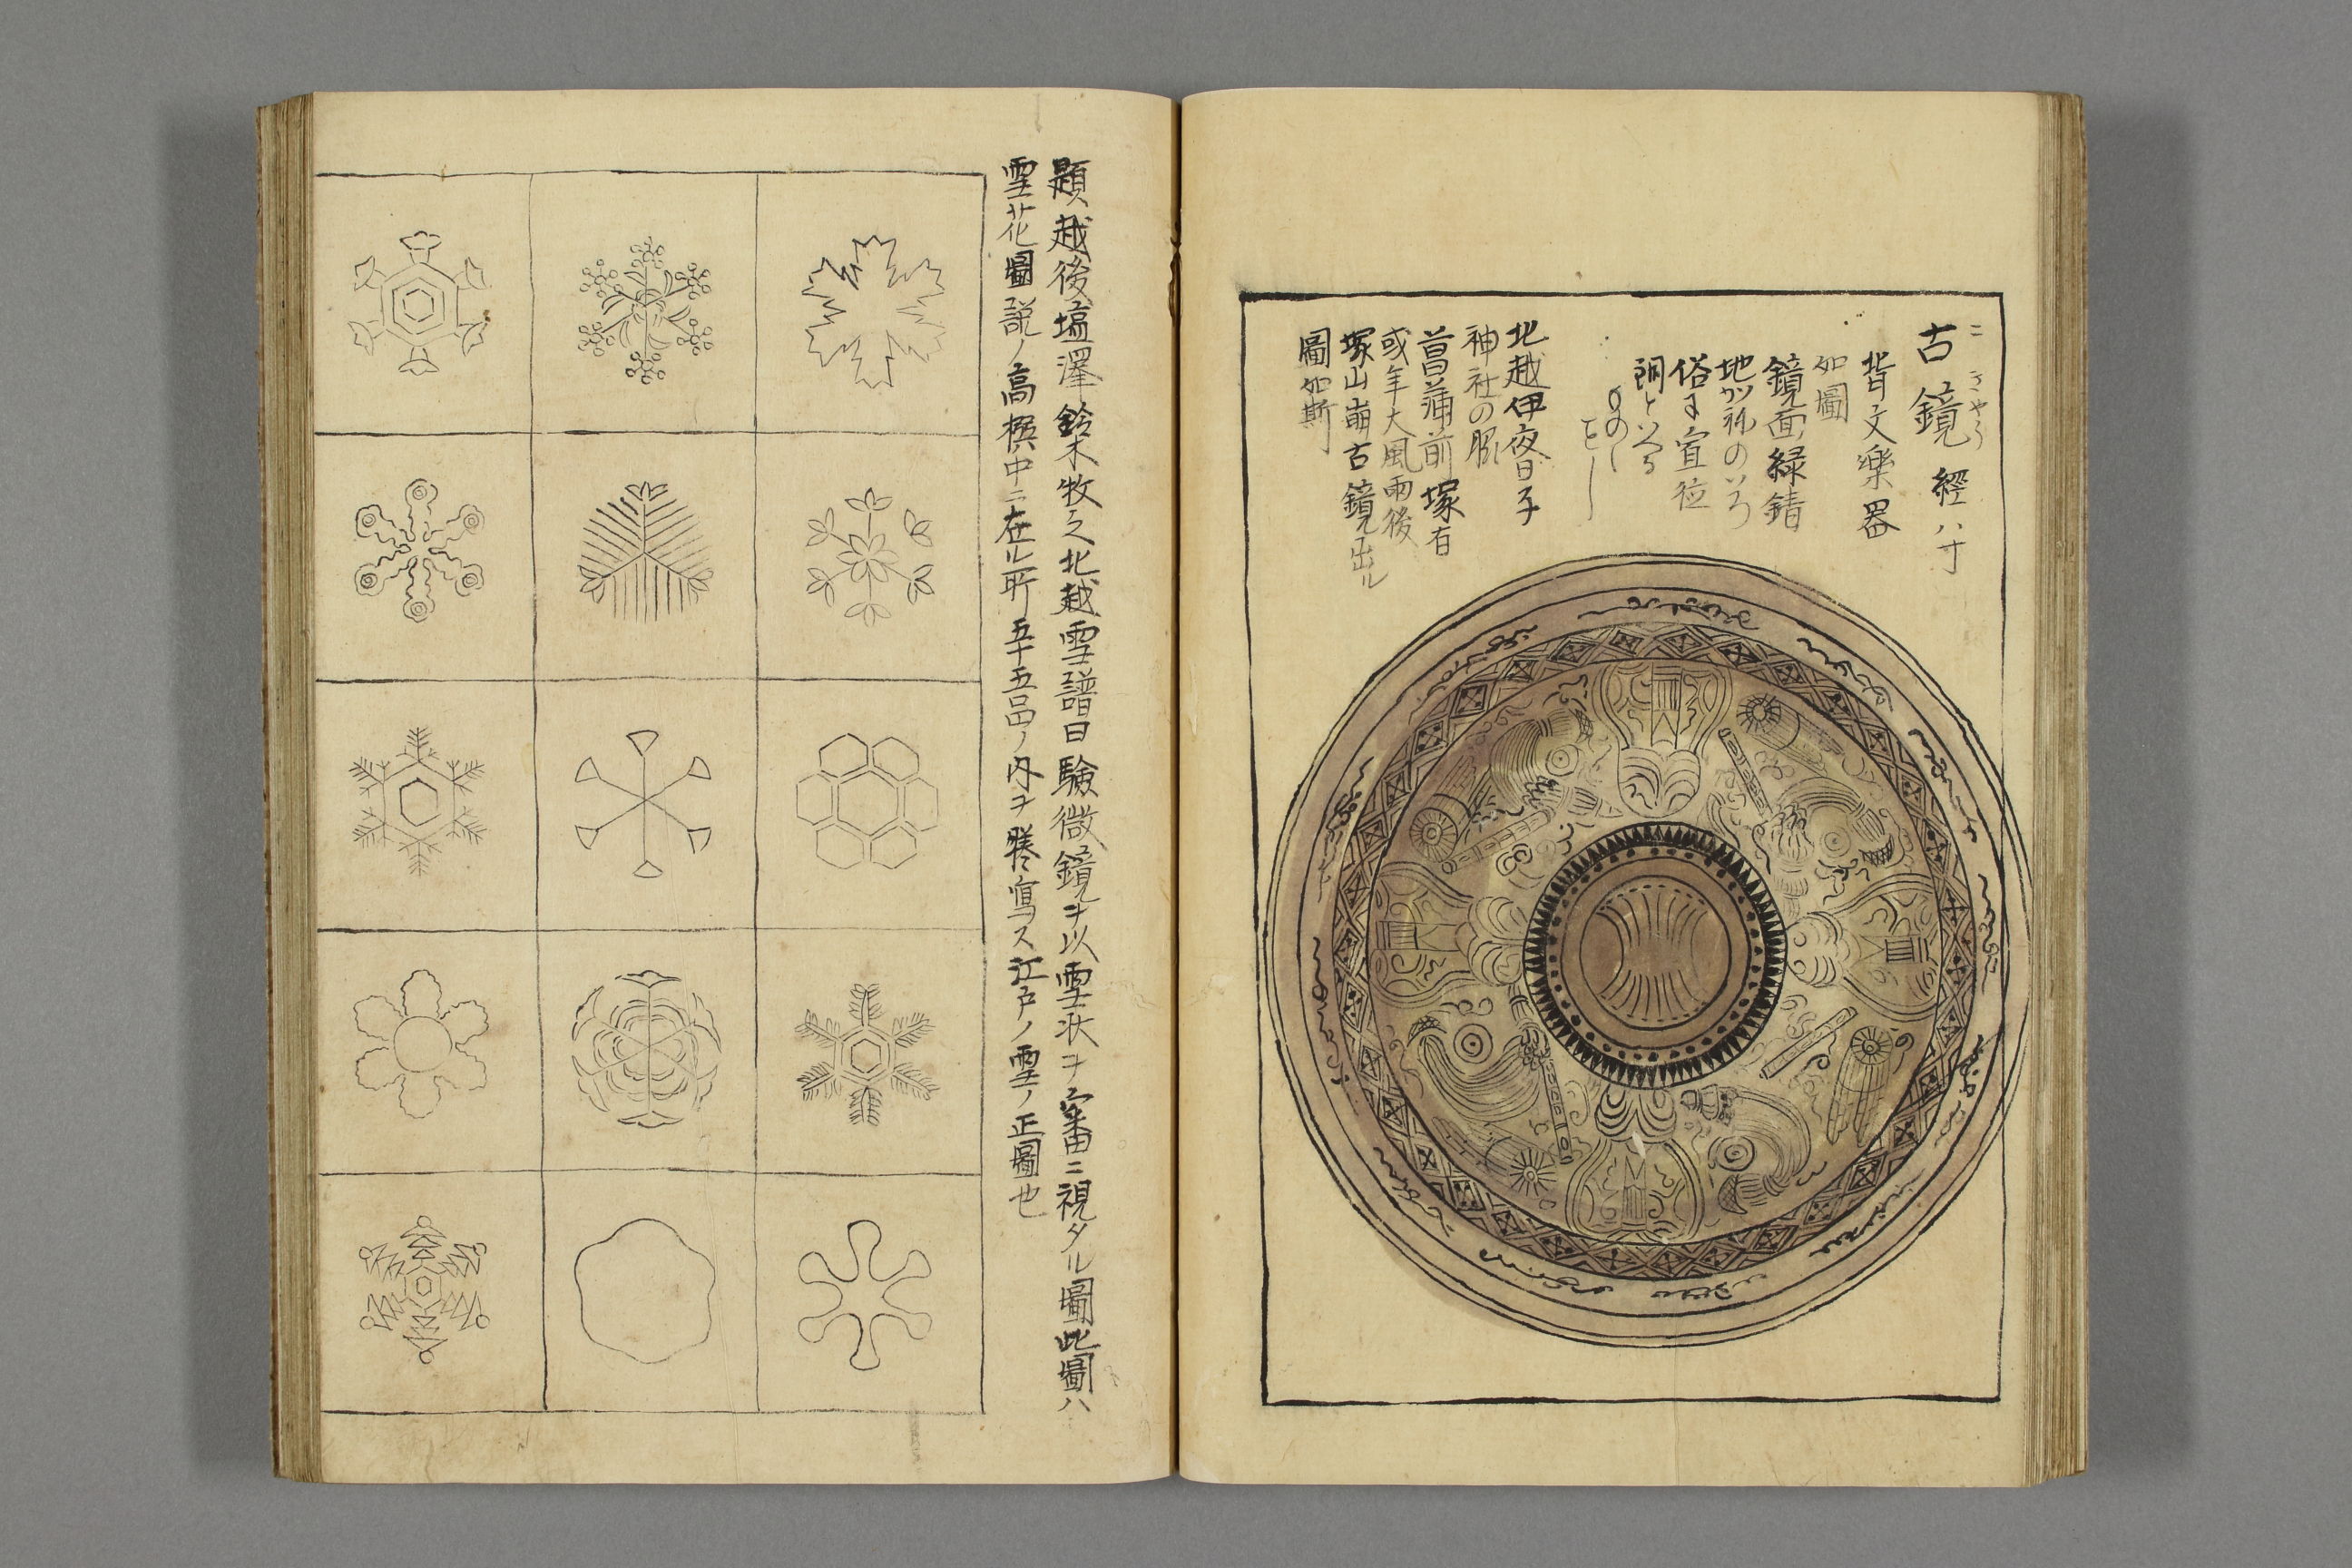 古鏡 經八寸
コ きやう
背文樂器
如圖
鏡面緑錆
地がねのいろ
俗に宣位
銅といふ
ものゝ
北越伊夜日子
神社の
菖蒲前塚有
或年大風雨後
塚山崩古鏡出ル
圖如斯
題越後塩澤鈴木牧之北越雪譜曰驗微鏡ヲ以雪状ヲ審ニ視タル圖此圖ハ
雪花圖説ノ高撰中ニ在ル所五十五品ノ内ヲ謄寫ス江戸ノ雪ノ正圖也